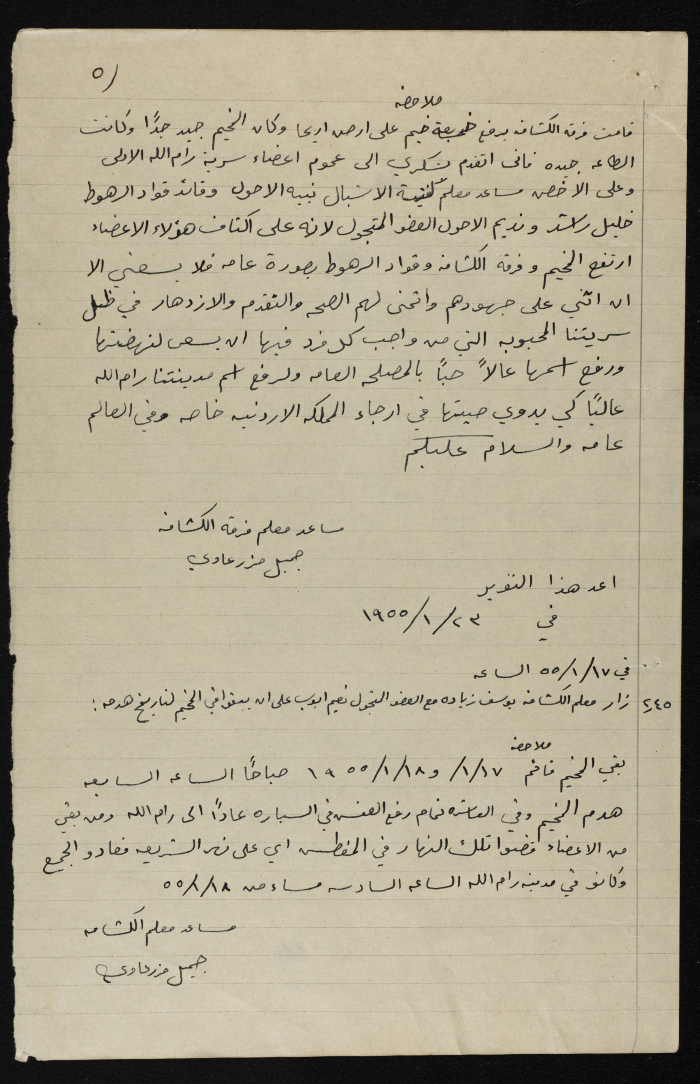 ٥)
ملاحظه
قامت فرقة الكشافه برفع خيم على ارض اريحا وكان المخيم جيد جدًا وكانت
الطاعه جيده فانى اتقدم بشكري الى عموم اعضاء سرية رام الله الاولى
وعلى الاخص مساعد معلم الاشبال نبيه الاحول وقائد قواد الرهوط
خليل راشد ونديم الاحول العضو المتجول لانه على اكتاف هؤلاء الاعضاء
ارتفع المخيم وفرقة الكشافه وقواد الرهوط بصورة عامه فلا يسعني الا
ان اثني على جهودهم واتمنى لهم الصحه والتقدم والازدهار في ظل
سريتنا المحبوبه التي من واجب كل فرد فيها ان يسعى لنهضتها
ورفع اسمها عالاً حبًا بالمصلحه العامه ولرفع اسم مدينتنا رام الله
عاليًا كي يدوي صيتها في ارجاء المملكه الاردنيه خاصه وفي العالم
عامه والسلام عليكم
مساعد معلم فرقة الكشافه
جميل مزرعاوي
اعد هذا التقرير
في ٢٣/١/١٩٥٥
في ٥٥/١/١٧ الساعه
٢٫٤٥ زار معلم الكشافه يوسف زياده مع العضو المتجول نعيم ايوب على ان يبقوا في المخيم لتاريخ هدمه :
ملاحظه
بقي المخيم قائم ١/١٧/ و ١٩٥٥/١/١٨ صباحًا الساعه السابعه
هدم المخيم وفي العاشره تمام رفع العفش في السياره عادًا الى رام الله ومن بقي
من الاعضاء قضوا تلك النهار في المغطس اي على نهر الشريعه فعادو الجميع
وكانو في مدينة رام الله الساعه السادسه مساء من ٥٥/١/١٨
مساعد معلم الكشافه
جميل مزرعاوي